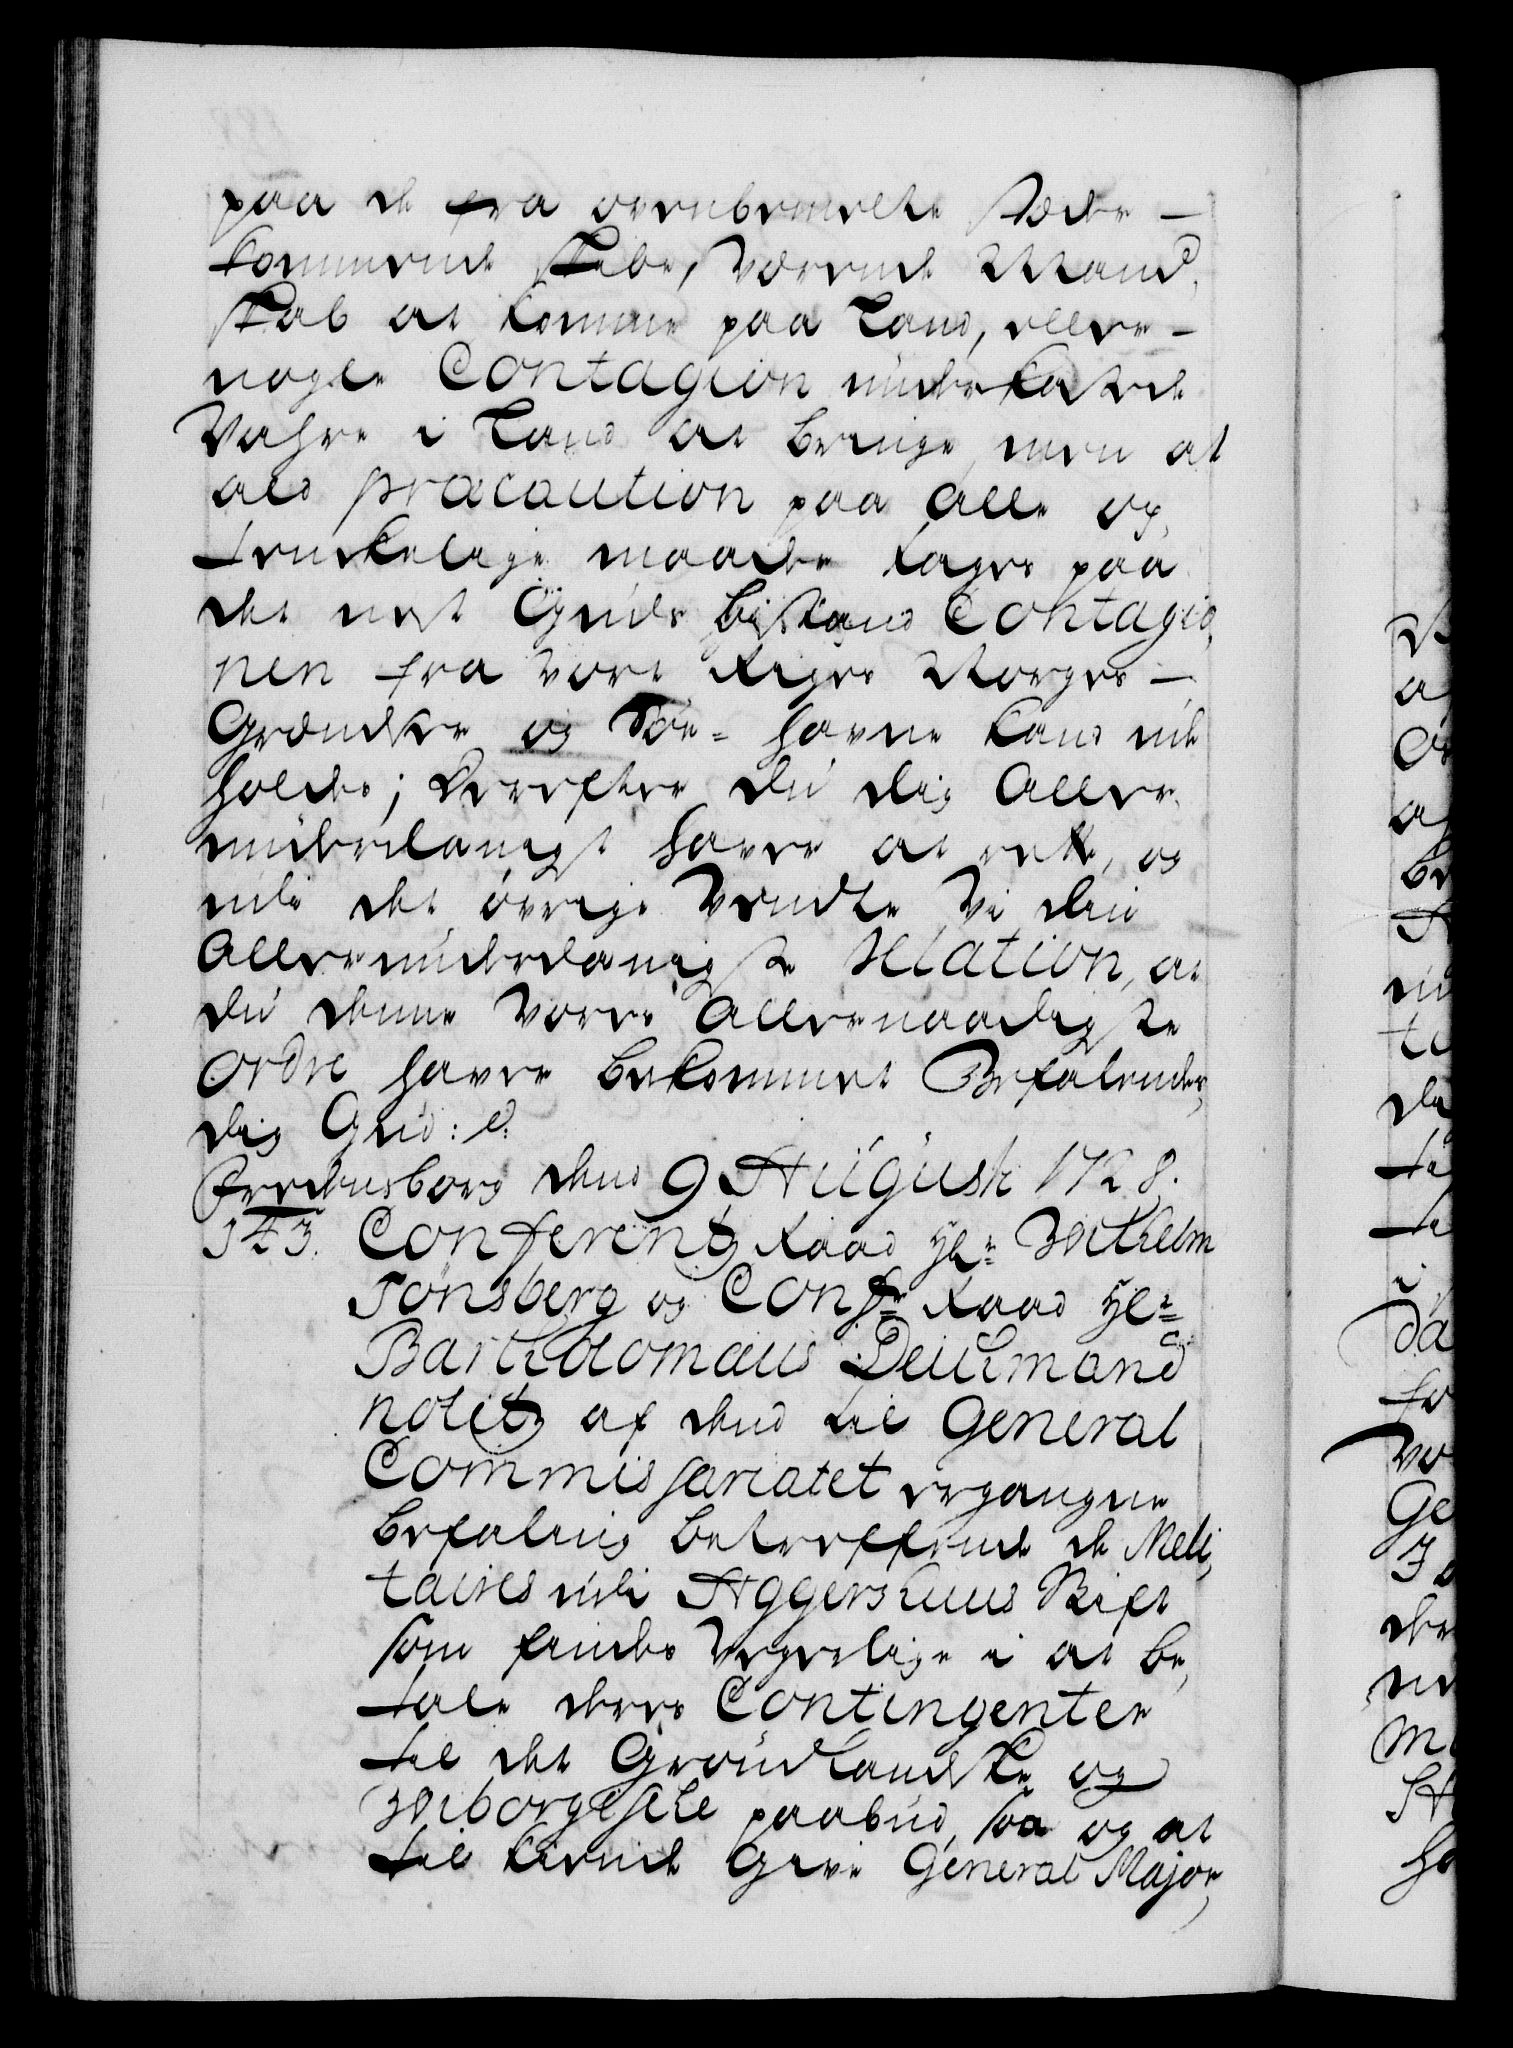 paa de fra ovenbemelte Stæder
kommende Skibe, værende Mand,
skab at komme paa Land, eller
nogle Contagion underkastede
Vahre i Land at bringe, men at
ald præcaution paa alle og
tænckelige maader tages paa
det med Guds bistand Contagio,
nen fra vort Riges Norges
Grændser og Søe-Havne kand ude
holdes; Derefter du dig Aller
underdanigst haver at rette, og
udi det øvrige vendte Vi din
Allerunderdanigste Relation, at
du denne Vores Allernaadigste
Ordre haver bekommet Befalendes
dig Gud: e:
Fredensborg dend 9 Augusti 1728.
143. Conferentz Raad Hr: Wilhelm
Tønsberg og Confr Raad Hr:
Bartholomæus Deichmand
notitz af dend til General
Commissariatet ergangne
befaling betreffende de Meli,
taires udi Aggershuus Stift
som findes vegerlige i at be,
tale deres Contingenter
til det Grønlandske og
Wiborgiske paabud, saa og at
tilkiende give General Major